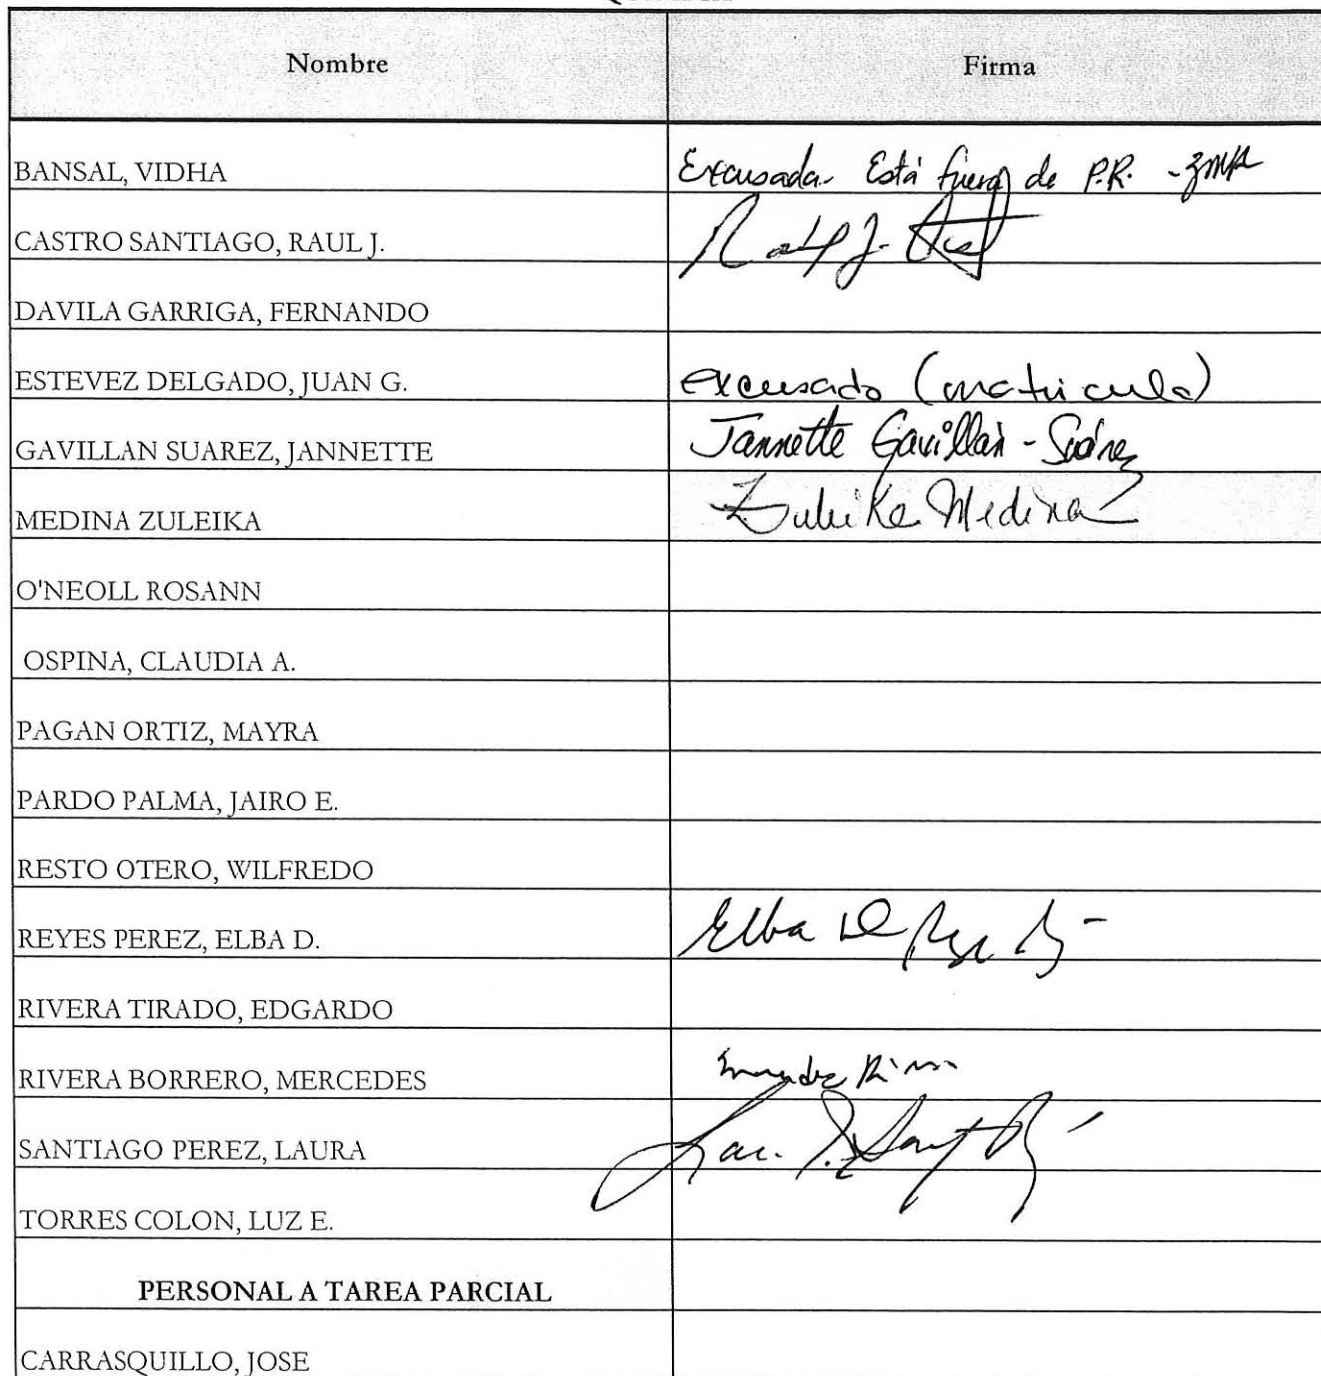 Nombre Firma
BANSAL, VIDHA Excusada - Está fuera de P.R. - ZMR
CASTRO SANTIAGO, RAUL J.
DAVILA GARRIGA, FERNANDO
ESTEVEZ DELGADO, JUAN G. excusado (matricula)
GAVILLAN SUAREZ, JANNETTE Jannette Gavillán - Suárez
MEDINA ZULEIKA Zuleika Medina
O'NEOLL ROSANN
OSPINA, CLAUDIA A.
PAGAN ORTIZ, MAYRA
PARDO PALMA, JAIRO E.
RESTO OTERO, WILFREDO
REYES PEREZ, ELBA D. Elba D
RIVERA TIRADO, EDGARDO
RIVERA BORRERO, MERCEDES
SANTIAGO PEREZ, LAURA
TORRES COLON, LUZ E.
PERSONAL A TAREA PARCIAL
CARRASQUILLO, JOSE